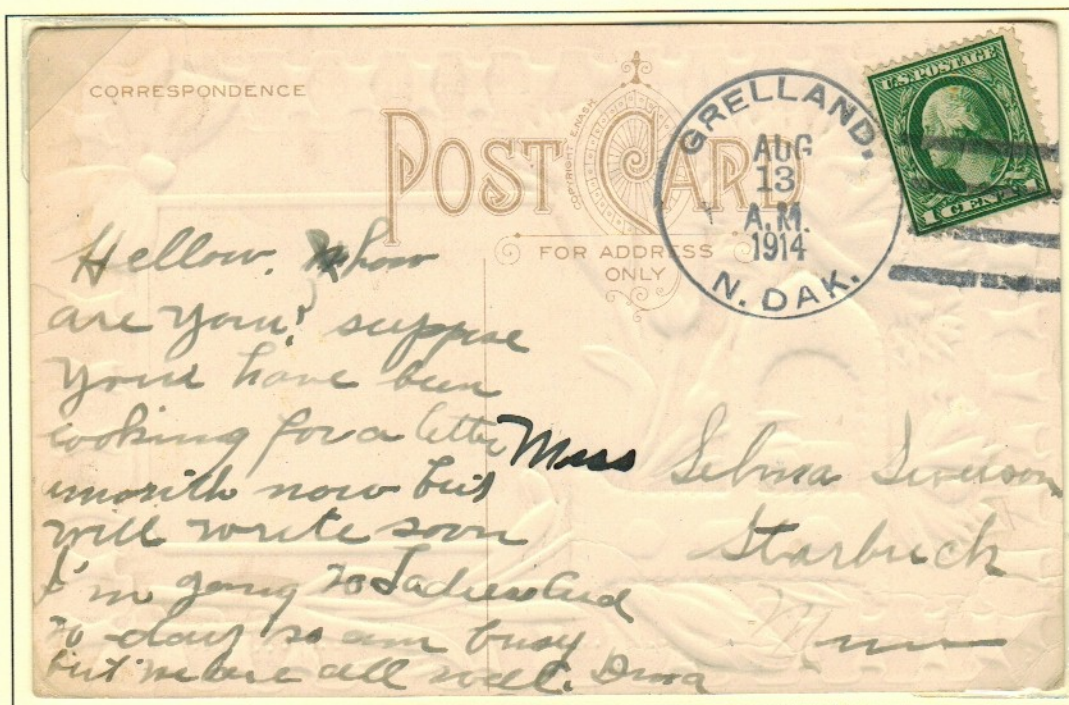 CORRESPONDENCE
POST CARD
COPYRIGHT E. NASH
FOR ADDRESS
ONLY
GRELLAND.
AUG
13
A.M.
1914
N. DAK.
U.S. POSTAGE
1 CENT 1
Hellow. how
are you? suppose
you have been
looking for a letter
a month now but
will write soon
I'm going to Ladies aid
to-day so am busy
but we are all well.
Miss Selma Severson
Starbuck
Minn